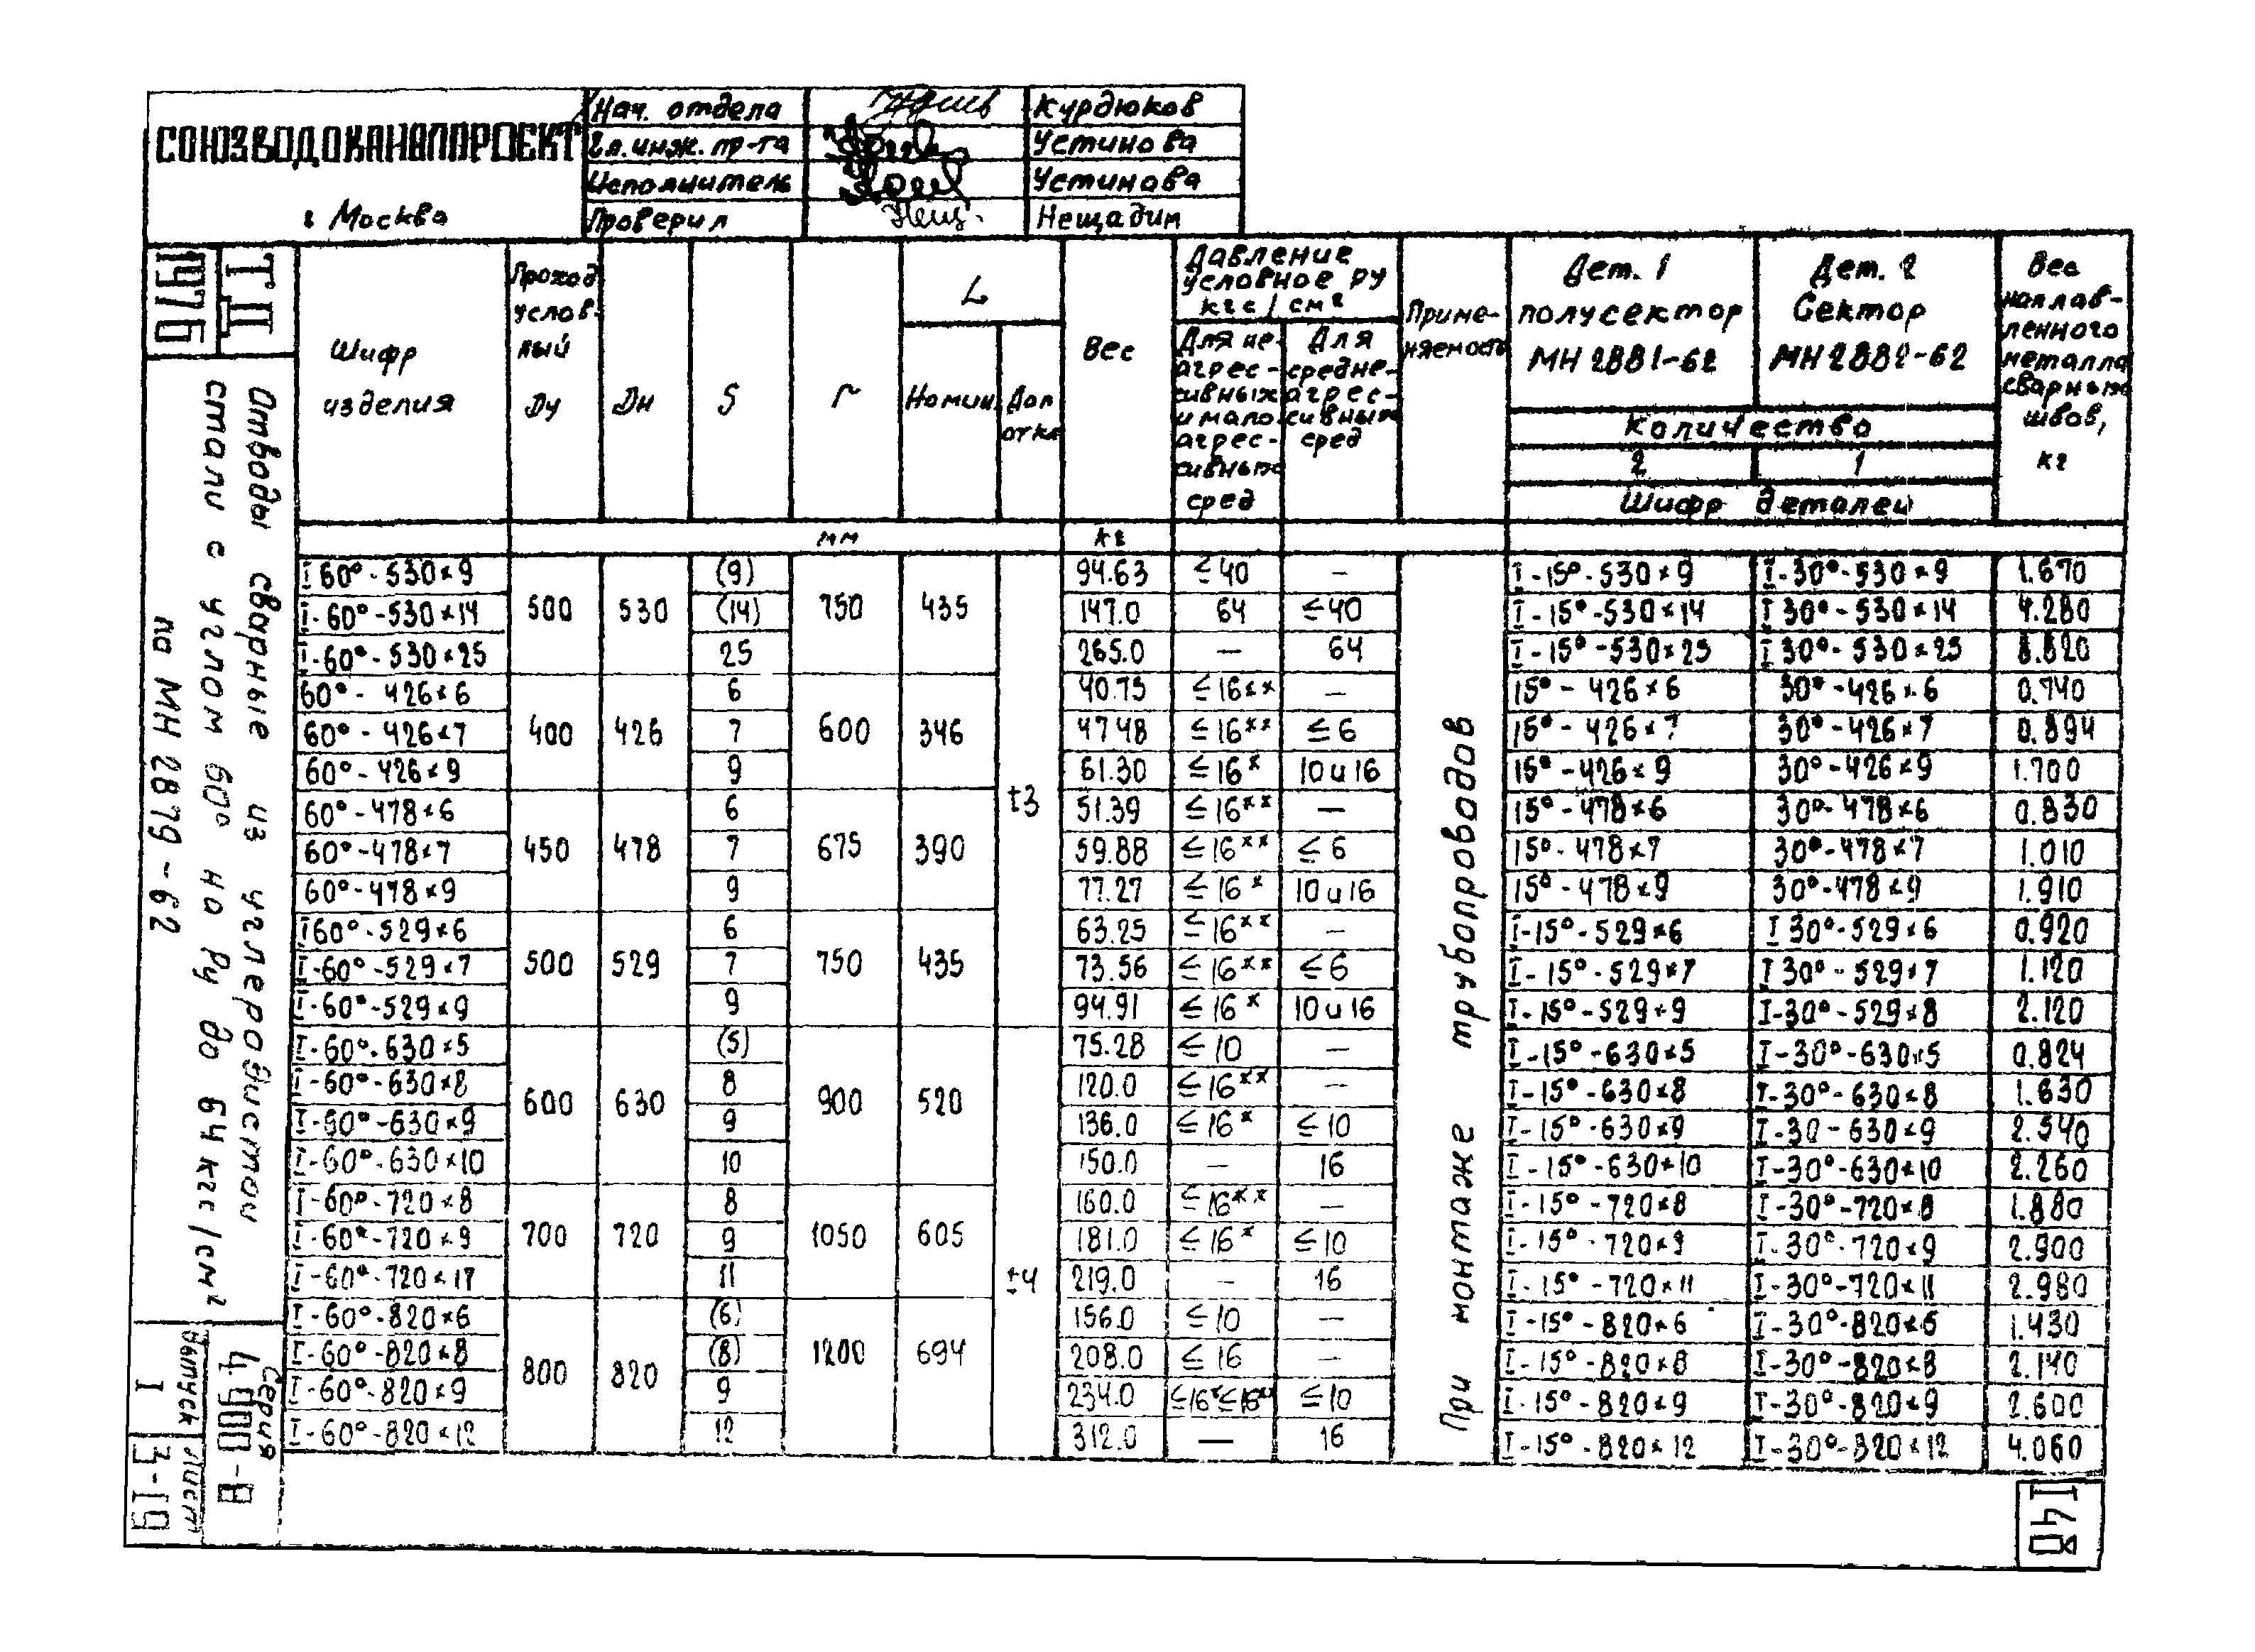 СОЮЗВОДОКАНАЛПРОЕКТ
г Москва
Нач. отдела Курдюков
Гл. инж. пр-та Устинова
Исполнитель Устинова
Проверил Нещ. Нещадим
ТД
1976
Отводы сварные из углеродистой
стали с углом 60° на Ру до 64 кгс/см²
по МН 2879-62
Серия
4.900-8
Выпуск
I
Лист
3-19
148
Шифр
изделия
Проход
услов-
ный
Ду
Дн
S
r
L
Номин.
Доп
откл
Вес
Давление
условное ру
кгс/см²
Для не-
агрес-
сивных
и мало-
агрес-
сивных
сред
Для
средне-
агрес-
сивных
сред
Приме-
няемость
Дет. 1
полусектор
МН 2881-62
Дет. 2
Сектор
МН 2882-62
Количество
2 1
Шифр деталей
Вес
наплав-
ленного
металла
сварных
швов,
кг
мм кг
I 60°-530×9 (9) 94.63 ≤40 – I-15°-530×9 I-30°-530×9 1.670
I-60°-530×14 500 530 (14) 750 435 147.0 64 ≤40 I-15°-530×14 I 30°-530×14 4.280
I-60°-530×25 25 265.0 – 64 I-15°-530×25 I 30°-530×25 8.820
60°-426×6 6 40.75 ≤16×× – 15°-426×6 30°-426×6 0.740
60°-426×7 400 426 7 600 346 47 48 ≤16×× ≤6 15°-426×7 30°-426×7 0.894
60°-426×9 9 61.30 ≤16× 10 и 16 15°-426×9 30°-426×9 1.700
60°-478×6 6 ±3 51.39 ≤16×× – 15°-478×6 30°-478×6 0.830
60°-478×7 450 478 7 675 390 59.88 ≤16×× ≤6 15°-478×7 30°-478×7 1.010
60°-478×9 9 77.27 ≤16× 10 и 16 15°-478×9 30°-478×9 1.910
I 60°-529×6 6 63.25 ≤16×× – I-15°-529×6 I 30°-529×6 0.920
I-60°-529×7 500 529 7 750 435 73.56 ≤16×× ≤6 I-15°-529×7 I 30°-529×7 1.120
I-60°-529×9 9 94.91 ≤16× 10 и 16 I-15°-529×9 I-30°-529×8 2.120
I-60°-630×5 (5) 75.28 ≤10 – I-15°-630×5 I-30°-630×5 0.824
I-60°-630×8 600 630 8 900 520 120.0 ≤16×× – I-15°-630×8 I-30°-630×8 1.630
I-90°-630×9 9 136.0 ≤16× ≤10 I-15°-630×9 I-30-630×9 2.540
I-60°-630×10 10 150.0 – 16 I-15°-630×10 I-30°-630×10 2.260
I-60°-720×8 8 160.0 ≤16×× – I-15°-720×8 I-30°-720×8 1.880
I-60°-720×9 700 720 9 1050 605 181.0 ≤16× ≤10 I-15°-720×9 I-30°-720×9 2.900
I-60°-720×17 11 ±4 219.0 – 16 I-15°-720×11 I-30°-720×11 2.980
I-60°-820×6 (6) 156.0 ≤10 – I-15°-820×6 I-30°-820×6 1.430
I-60°-820×8 800 820 (8) 1200 694 208.0 ≤16 – I-15°-820×8 I-30°-820×8 2.140
I-60°-820×9 9 234.0 ≤16×≤16×× ≤10 I-15°-820×9 I-30°-820×9 2.600
I-60°-820×12 12 312.0 — 16 I-15°-820×12 I-30°-820×12 4.060
При монтаже трубопроводов